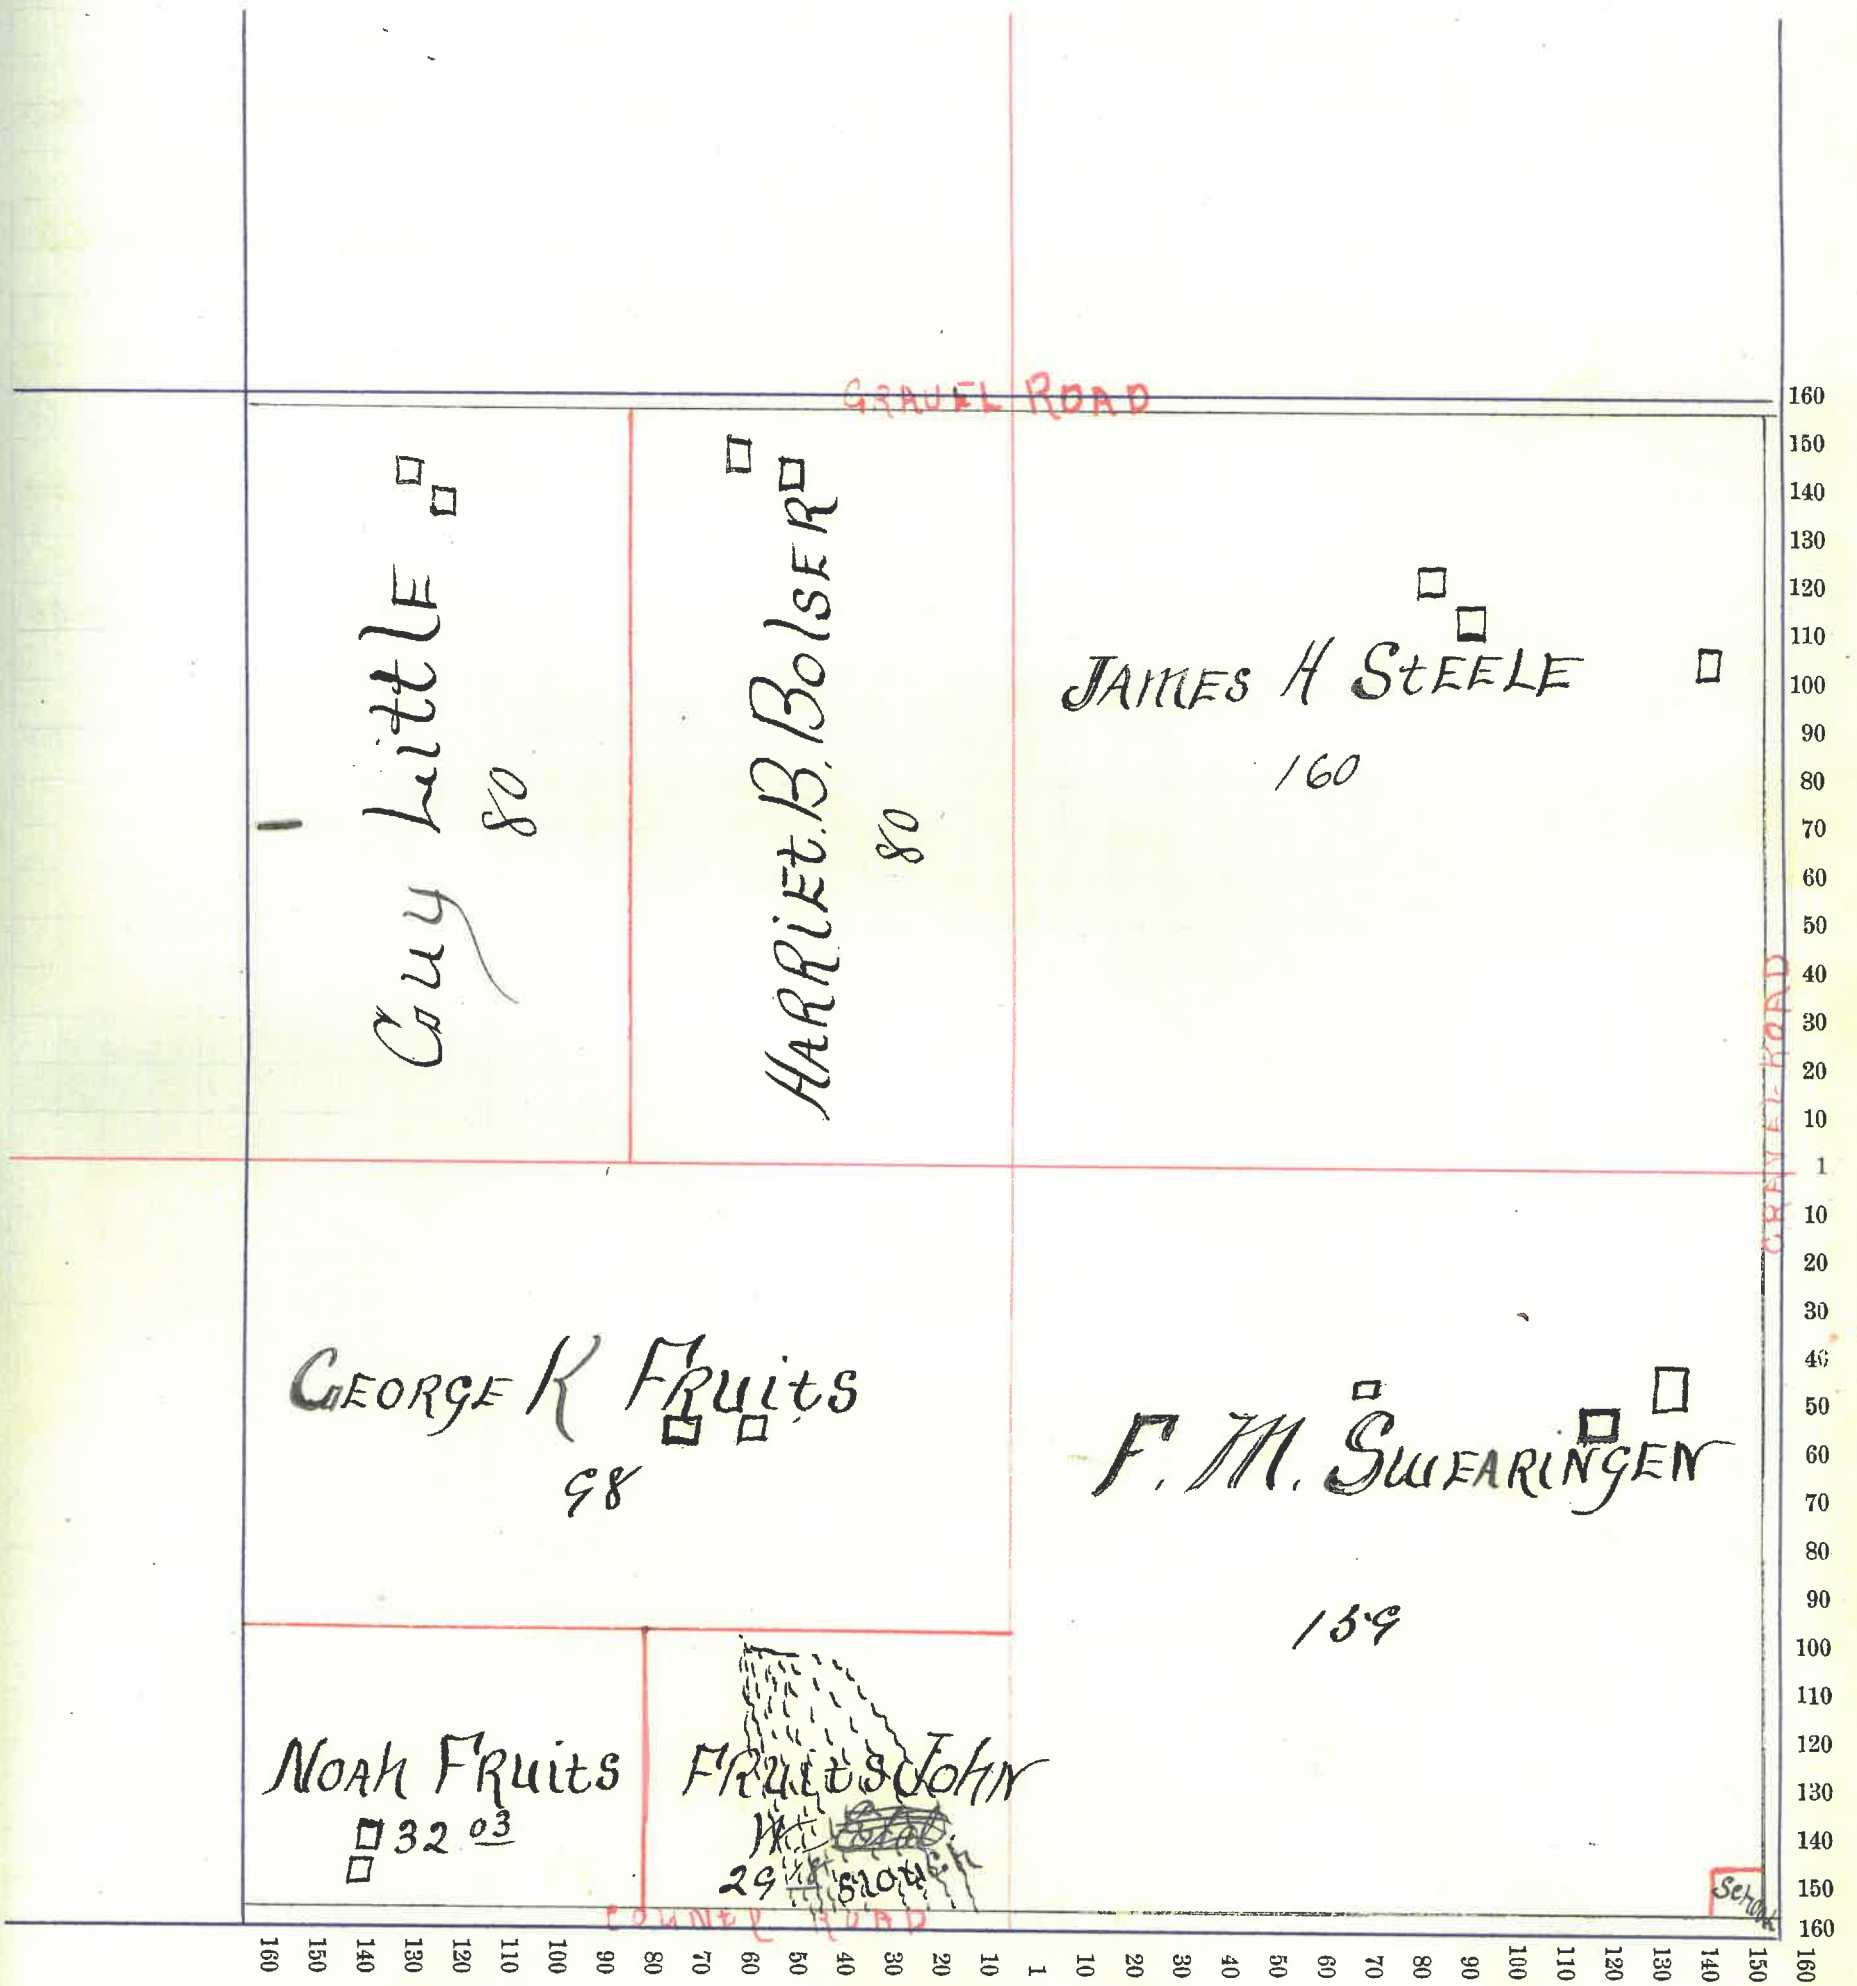 GRAVEL ROAD
Couy Little
80
HARRIET. B. BOlSER
80
JAMES H StEELE
160
GRAVEL ROAD
GEORGE K FRuits
98
F. M. SWEARINGEN
159
NOAH FRuits
32 03
FRuits JOHN
29
School
COUNtY ROAD
160
150
140
130
120
110
100
90
80
70
60
50
40
30
20
10
1
10
20
30
40
50
60
70
80
90
100
110
120
130
140
150
160
160 150 140 130 120 110 100 90 80 70 60 50 40 30 20 10 1 10 20 30 40 50 60 70 80 90 100 110 120 130 140 150 160